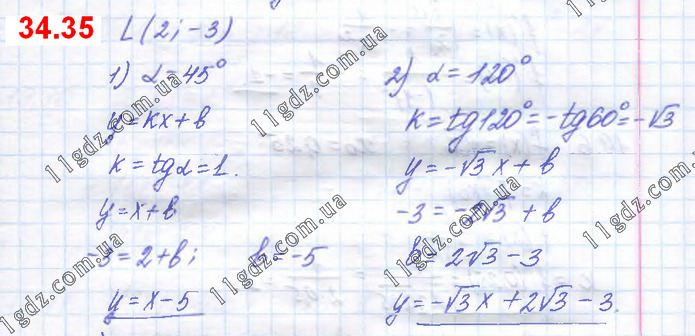 34.35 L(2; -3)
1) α = 45°
y = kx + b
k = tgα = 1.
y = x + b
-3 = 2 + b; b = -5
y = x - 5
2) α = 120°
k = tg120° = -tg60° = -√3
y = -√3 x + b
-3 = -2√3 + b
b = 2√3 - 3
y = -√3 x + 2√3 - 3.
11gdz.com.ua
11gdz.com.ua
11gdz.com.ua
11gdz.com.ua
11gdz.com.ua
11gdz.com.ua
11gdz.com.ua